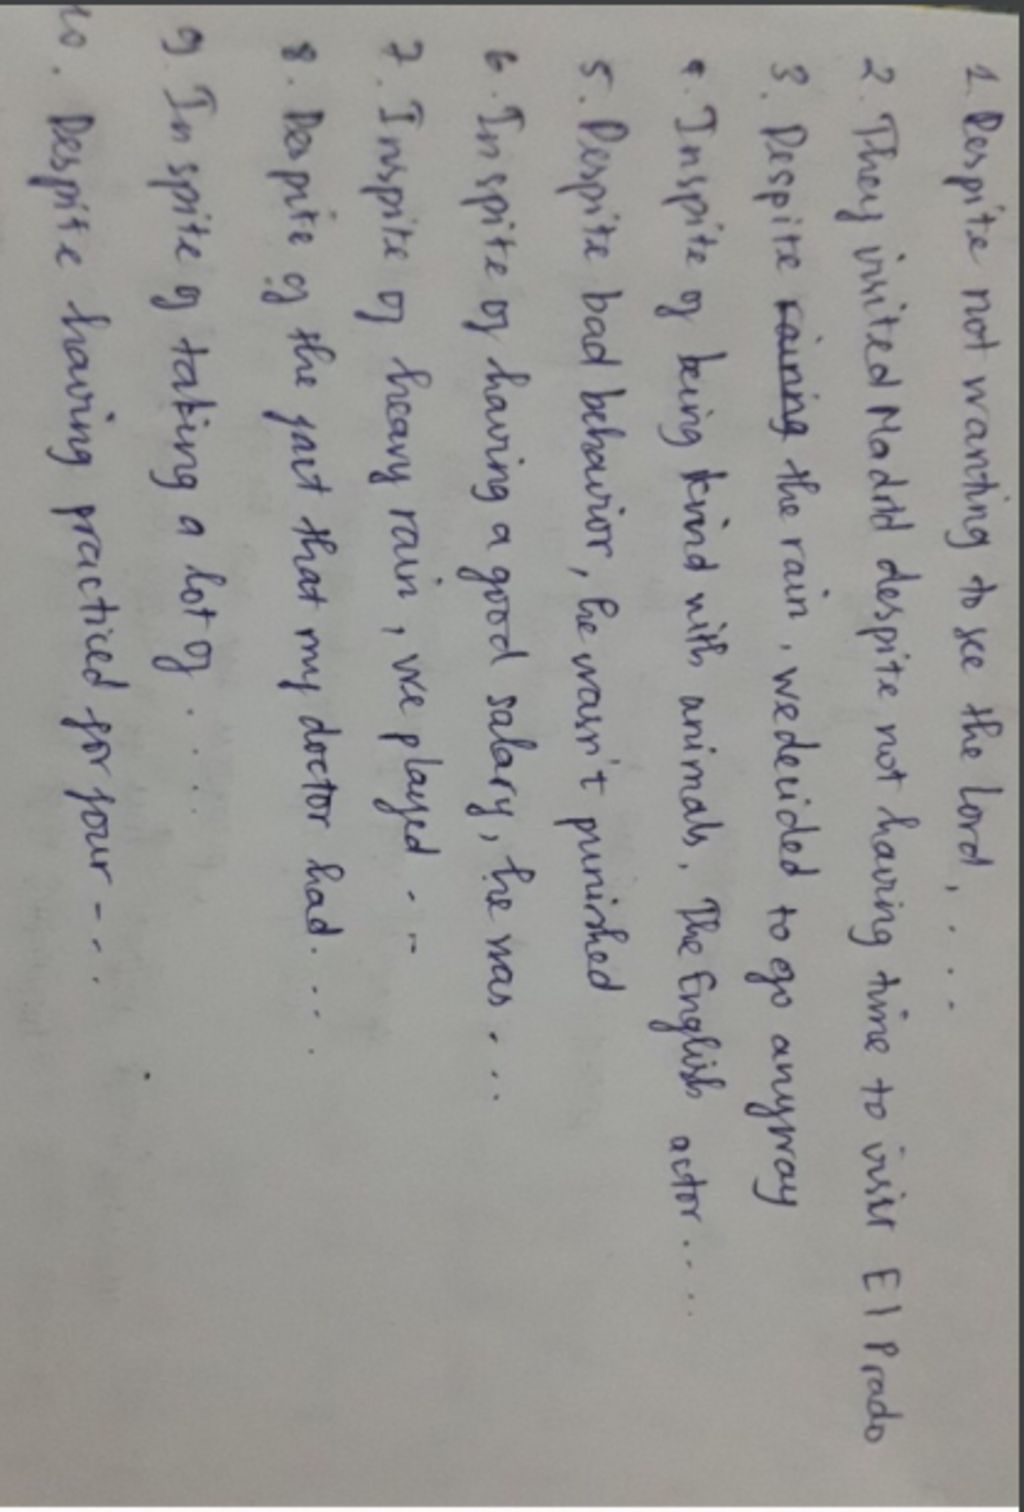 1. Despite not wanting to see the lord, ....
2. They visited Madrid despite not having time to visit El Prado
3. Despite raining the rain, we decided to go anyway
4. Inspite of being kind with animals. The English actor....
5. Despite bad behavior, he wasn't punished
6. Inspite of having a good salary, he was...
7. Inspite of heavy rain, we played ...
8. Despite of the fact that my doctor had...
9. Inspite of taking a lot of ...
10. Despite having practiced for four ---.